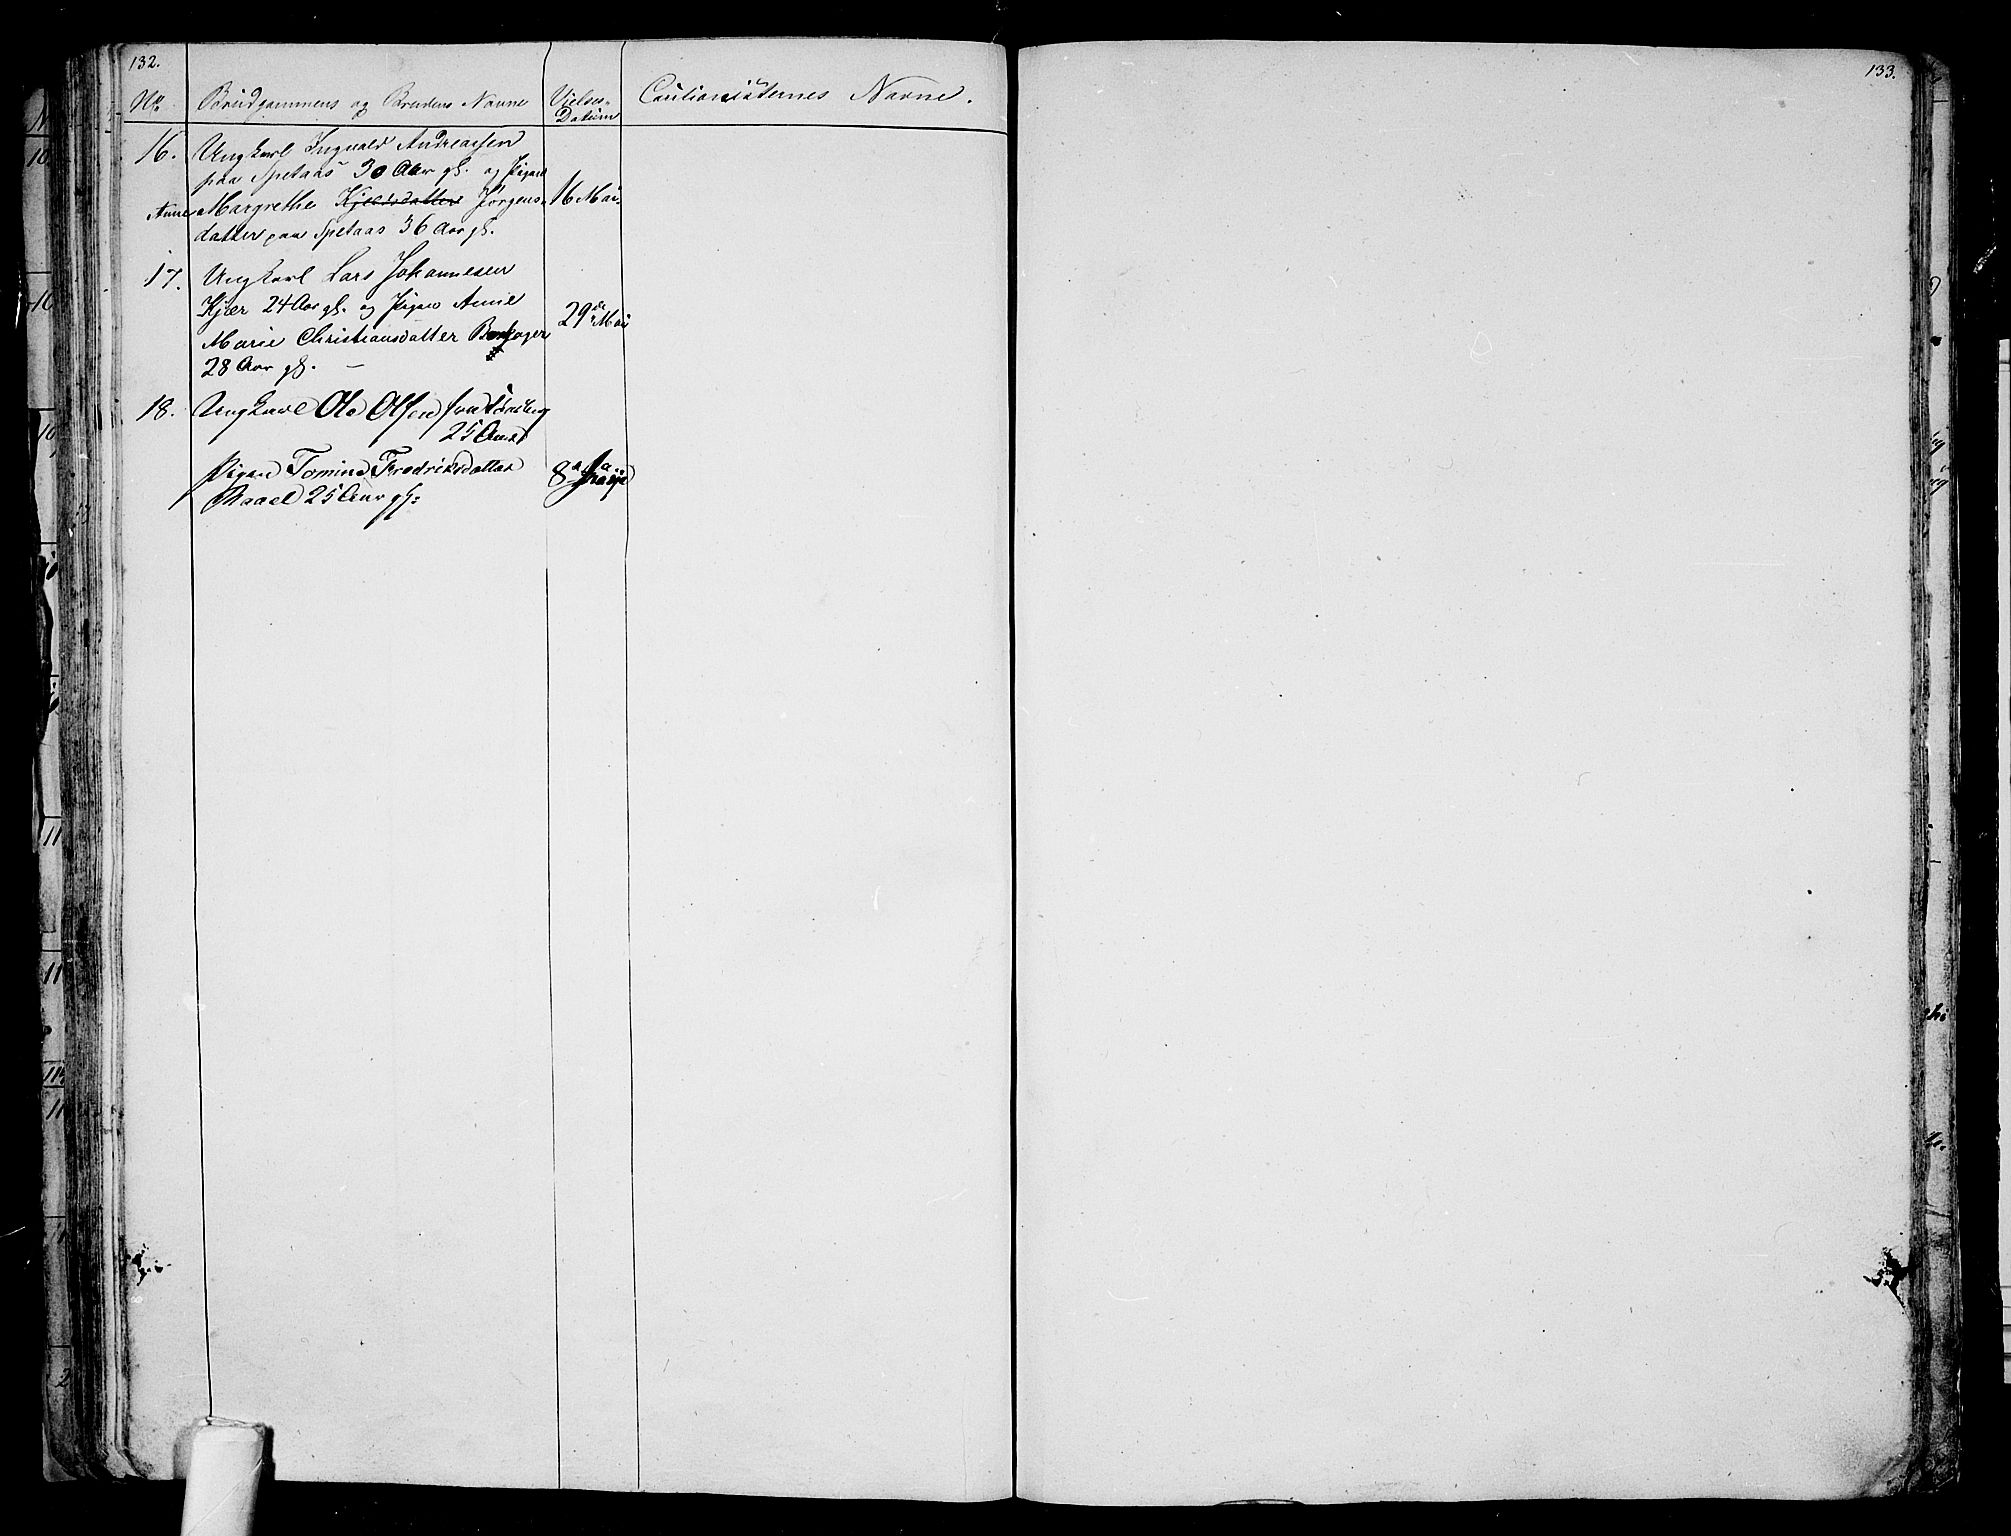 132.
No. Brudgommens og Brudens Navne Vielses- Cautionisternes Navne.
Datum
16. Ungkarl Ingvald Andreassen
paa Spetaas 30 Aar gl. og Pigen
Anne Margrethe Kjeldsdatter Jörgens- 16 Mai.
datter paa Spetaas 36 Aar gl.
17. Ungkarl Lars Johannesen
Kjær 24 Aar gl. og Pigen Anne
Marie Christiansdatter 29de Mai
28 Aar gl. —
18. Ungkarl Ole Olsen fra Tönsberg
25 Aar
Pigen Tomine Fredriksdatter 8
25 Aar gl:
133.